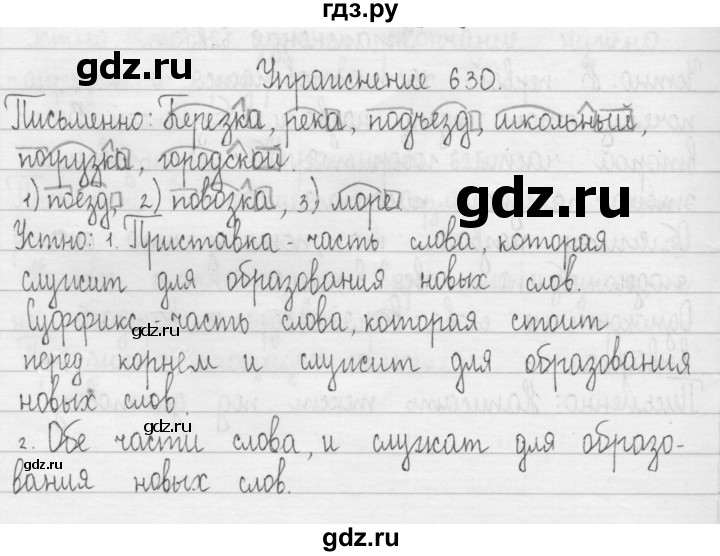 гдз.ру
gdz.ru
Упражнение 630.
gdz.ru
Письменно: Берёзка, река, подъезд, школьный,
погрузка, городской.
gdz.ru
1) поезд, 2) повозка, 3) море
gdz.ru
Устно: 1. Приставка - часть слова, которая
служит для образования новых слов.
Суффикс - часть слова, которая стоит
gdz.ru
перед корнем и служит для образования
новых слов.
gdz.ru
2. Обе части слова, и служат для образо-
gdz.ru
вания новых слов.
gdz.ru
gdz.ru